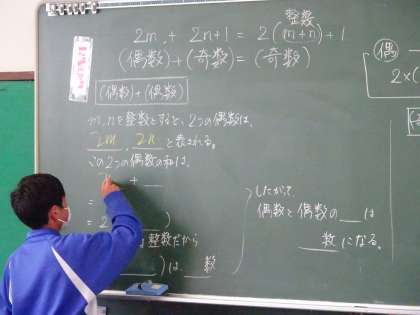 整数
2m + 2n+1 = 2(m+n)+1
(偶数)+(奇数)=(奇数)
(偶数)+(偶数)
m, nを整数とすると、2つの偶数は、
2m , 2n と表される。
この2つの偶数の和は、
+
=
= 2 )
は整数だから
)は、 数
したがって
偶数と偶数の は
数になる。
偶
2×(